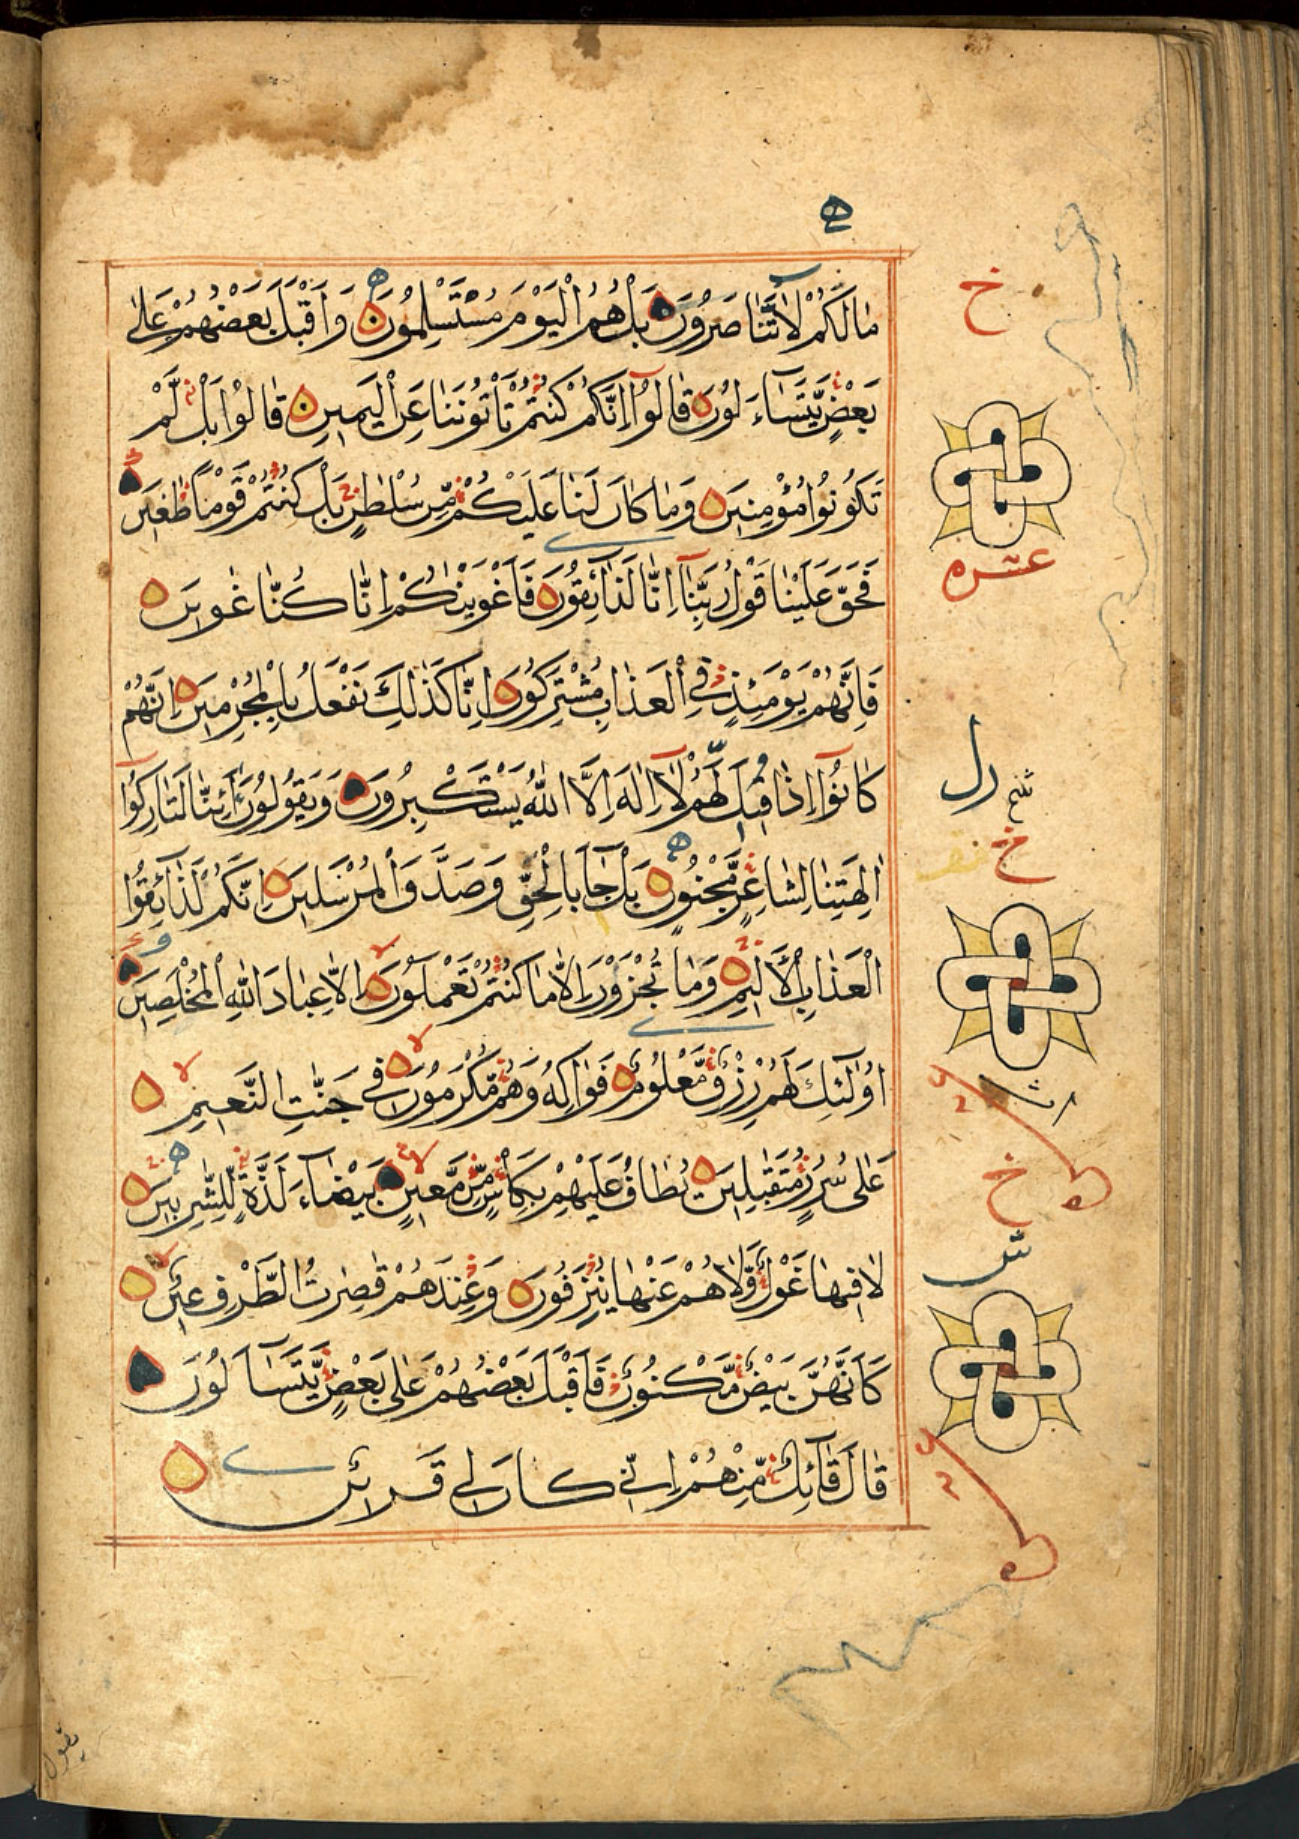 ه
مَا لَكُمْ لَا تَنَاصَرُونَ بَلْ هُمُ الْيَوْمَ مُسْتَسْلِمُونَ وَأَقْبَلَ بَعْضُهُمْ عَلٰى
خ
بَعْضٍ يَّتَسَآءَلُونَ قَالُوْٓا اِنَّكُمْ كُنْتُمْ تَأْتُونَنَا عَنِ الْيَمِينِ قَالُوْا بَلْ لَّمْ
تَكُونُوا مُؤْمِنِينَ وَمَا كَانَ لَنَا عَلَيْكُمْ مِّنْ سُلْطٰنٍ بَلْ كُنْتُمْ قَوْمًا طٰغِينَ
عشره
فَحَقَّ عَلَيْنَا قَوْلُ رَبِّنَآ اِنَّا لَذَآئِقُونَ فَاَغْوَيْنٰكُمْ اِنَّا كُنَّا غٰوِينَ
فَاِنَّهُمْ يَوْمَئِذٍ فِي الْعَذَابِ مُشْتَرِكُونَ اِنَّا كَذٰلِكَ نَفْعَلُ بِالْمُجْرِمِينَ اِنَّهُمْ
كَانُوْٓا اِذَا قِيلَ لَهُمْ لَآ اِلٰهَ اِلَّا اللّٰهُ يَسْتَكْبِرُونَ وَيَقُولُونَ اَئِنَّا لَتَارِكُوْٓا
خ
اٰلِهَتِنَا لِشَاعِرٍ مَّجْنُونٍ بَلْ جَآ بِالْحَقِّ وَصَدَّقَ الْمُرْسَلِينَ اِنَّكُمْ لَذَآئِقُوا
الْعَذَابِ الْاَلِيمِ وَمَا تُجْزَوْنَ اِلَّا مَا كُنْتُمْ تَعْمَلُونَ اِلَّا عِبَادَ اللّٰهِ الْمُخْلَصِينَ
اُولٰٓئِكَ لَهُمْ رِزْقٌ مَّعْلُومٌ فَوَاكِهُ وَهُمْ مُّكْرَمُونَ فِي جَنّٰتِ النَّعِيمِ
خ
عَلٰى سُرُرٍ مُّتَقٰبِلِينَ يُطَافُ عَلَيْهِمْ بِكَأْسٍ مِّنْ مَّعِينٍ بَيْضَآءَ لَذَّةٍ لِّلشّٰرِبِينَ
لَا فِيهَا غَوْلٌ وَّلَا هُمْ عَنْهَا يُنْزَفُونَ وَعِنْدَهُمْ قٰصِرٰتُ الطَّرْفِ عِينٌ
كَاَنَّهُنَّ بَيْضٌ مَّكْنُونٌ فَاَقْبَلَ بَعْضُهُمْ عَلٰى بَعْضٍ يَّتَسَآلُونَ
قَالَ قَآئِلٌ مِّنْهُمْ اِنِّي كَانَ لِي قَرِينٌ
يقول